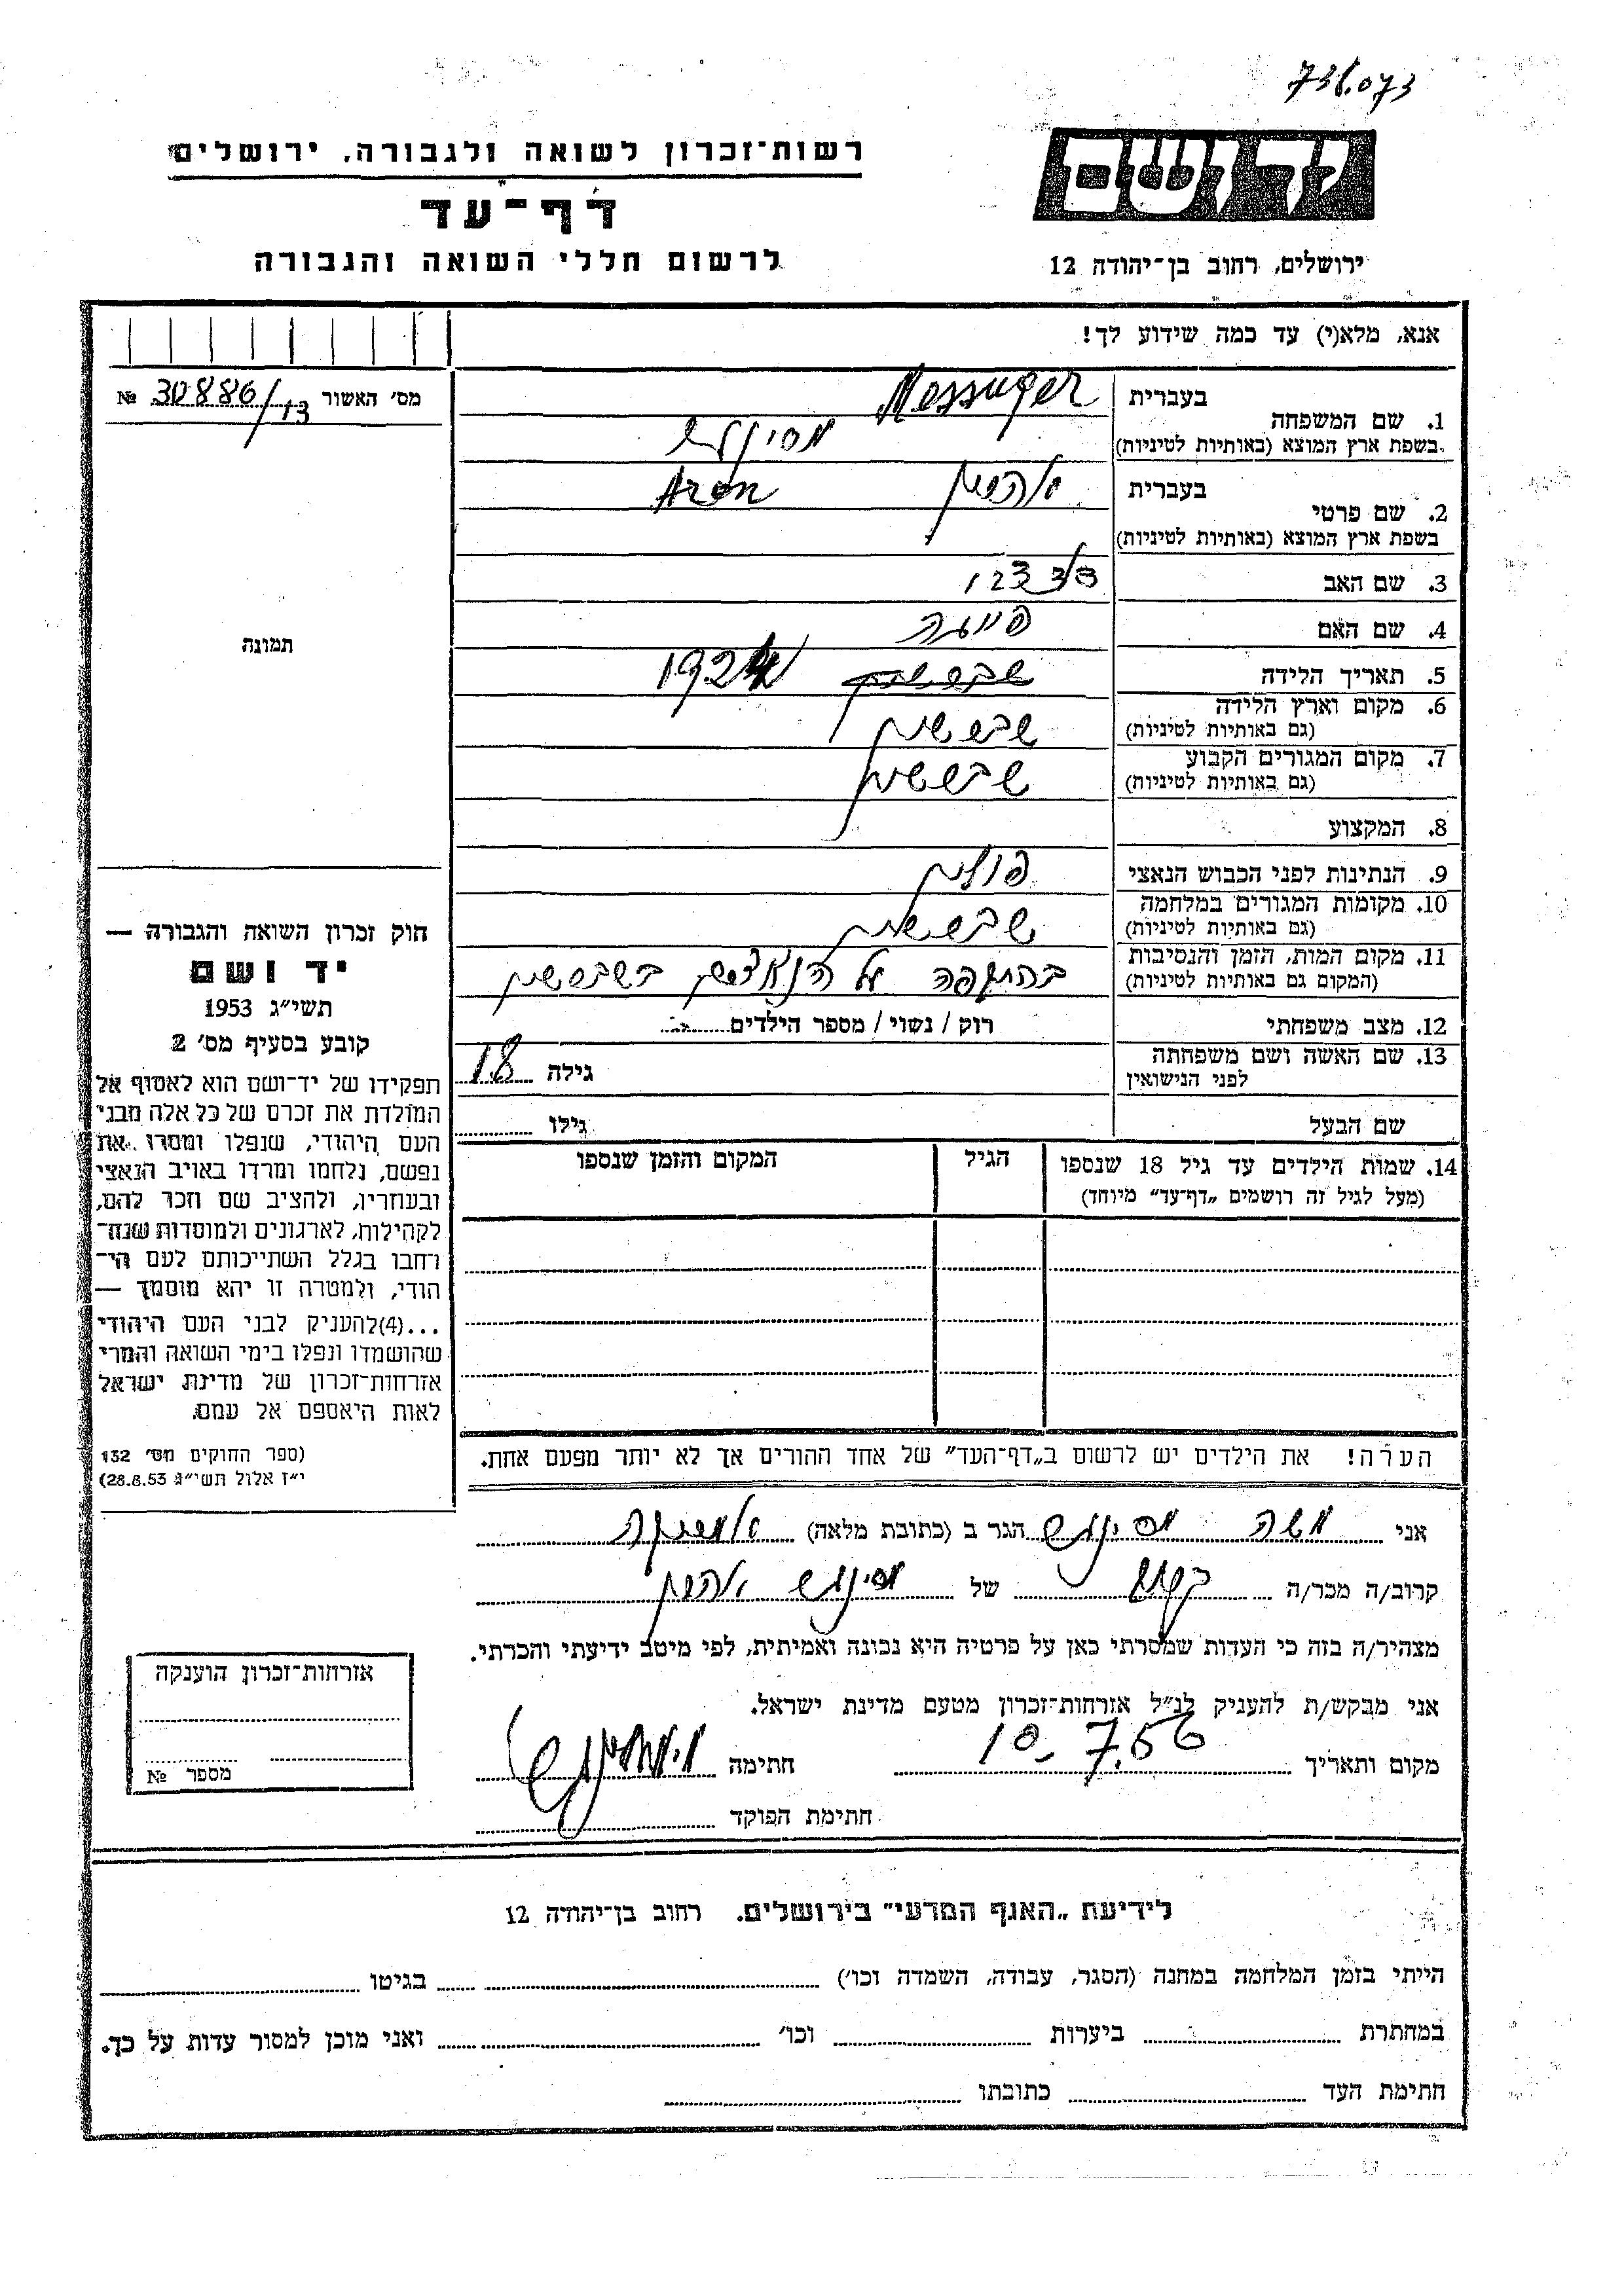 738.073
רשות־זכרון לשואה ולגבורה, ירושלים
דף־עד
לרשום חללי השואה והגבורה
יד ושם
ירושלים, רחוב בן־יהודה 12
אנא, מלא(י) עד כמה שידוע לך!
מס׳ האשור № 30886/13
תמונה
1. שם המשפחה בעברית Messinger
בשפת ארץ המוצא (באותיות לטיניות)
2. שם פרטי בעברית אהרון Aron
בשפת ארץ המוצא (באותיות לטיניות)
3. שם האב
4. שם האם
5. תאריך הלידה 1924
6. מקום וארץ הלידה
(גם באותיות לטיניות)
7. מקום המגורים הקבוע
(גם באותיות לטיניות)
8. המקצוע
9. הנתינות לפני הכבוש הנאצי פולין
10. מקומות המגורים במלחמה
(גם באותיות לטיניות)
11. מקום המות, הזמן והנסיבות
(המקום גם באותיות לטיניות)
12. מצב משפחתי רוק / נשוי / מספר הילדים
13. שם האשה ושם משפחתה
לפני הנישואין גילה 18
שם הבעל גילו
14. שמות הילדים עד גיל 18 שנספו הגיל המקום והזמן שנספו
(מעל לגיל זה רושמים „דף־עד” מיוחד)
הערה! את הילדים יש לרשום ב„דף־העד” של אחד ההורים אך לא יותר מפעם אחת.
חוק זכרון השואה והגבורה —
יד ושם
תשי״ג 1953
קובע בסעיף מס׳ 2
תפקידו של יד־ושם הוא לאסוף אל
המולדת את זכרם של כל אלה מבני
העם היהודי, שנפלו ומסרו את
נפשם, נלחמו ומרדו באויב הנאצי
ובעוזריו, ולהציב שם וזכר להם,
לקהילות, לארגונים ולמוסדות שנח־
רחבו בגלל השתייכותם לעם הי־
הודי, ולמטרה זו יהא מוסמך —
...(4)להעניק לבני העם היהודי
שהושמדו ונפלו בימי השואה והמרי
אזרחות־זכרון של מדינת ישראל
לאות היאספם אל עמם.
(ספר החוקים מס׳ 132
י״ז אלול תשי״ג 28.8.53)
אני משה הגר ב (כתובת מלאה)
קרוב/ה מכר/ה של אהרון
מצהיר/ה בזה כי העדות שמסרתי כאן על פרטיה היא נכונה ואמיתית, לפי מיטב ידיעתי והכרתי.
אני מבקש/ת להעניק לנ״ל אזרחות־זכרון מטעם מדינת ישראל.
מקום ותאריך 10.7.56 חתימה
חתימת הפוקד
אזרחות־זכרון הוענקה
מספר №
לידיעת „האגף המדעי” בירושלים. רחוב בן־יהודה 12
הייתי בזמן המלחמה במחנה (הסגר, עבודה, השמדה וכו׳) בגיטו
במחתרת ביערות וכו׳ ואני מוכן למסור עדות על כך.
חתימת העד כתובתו